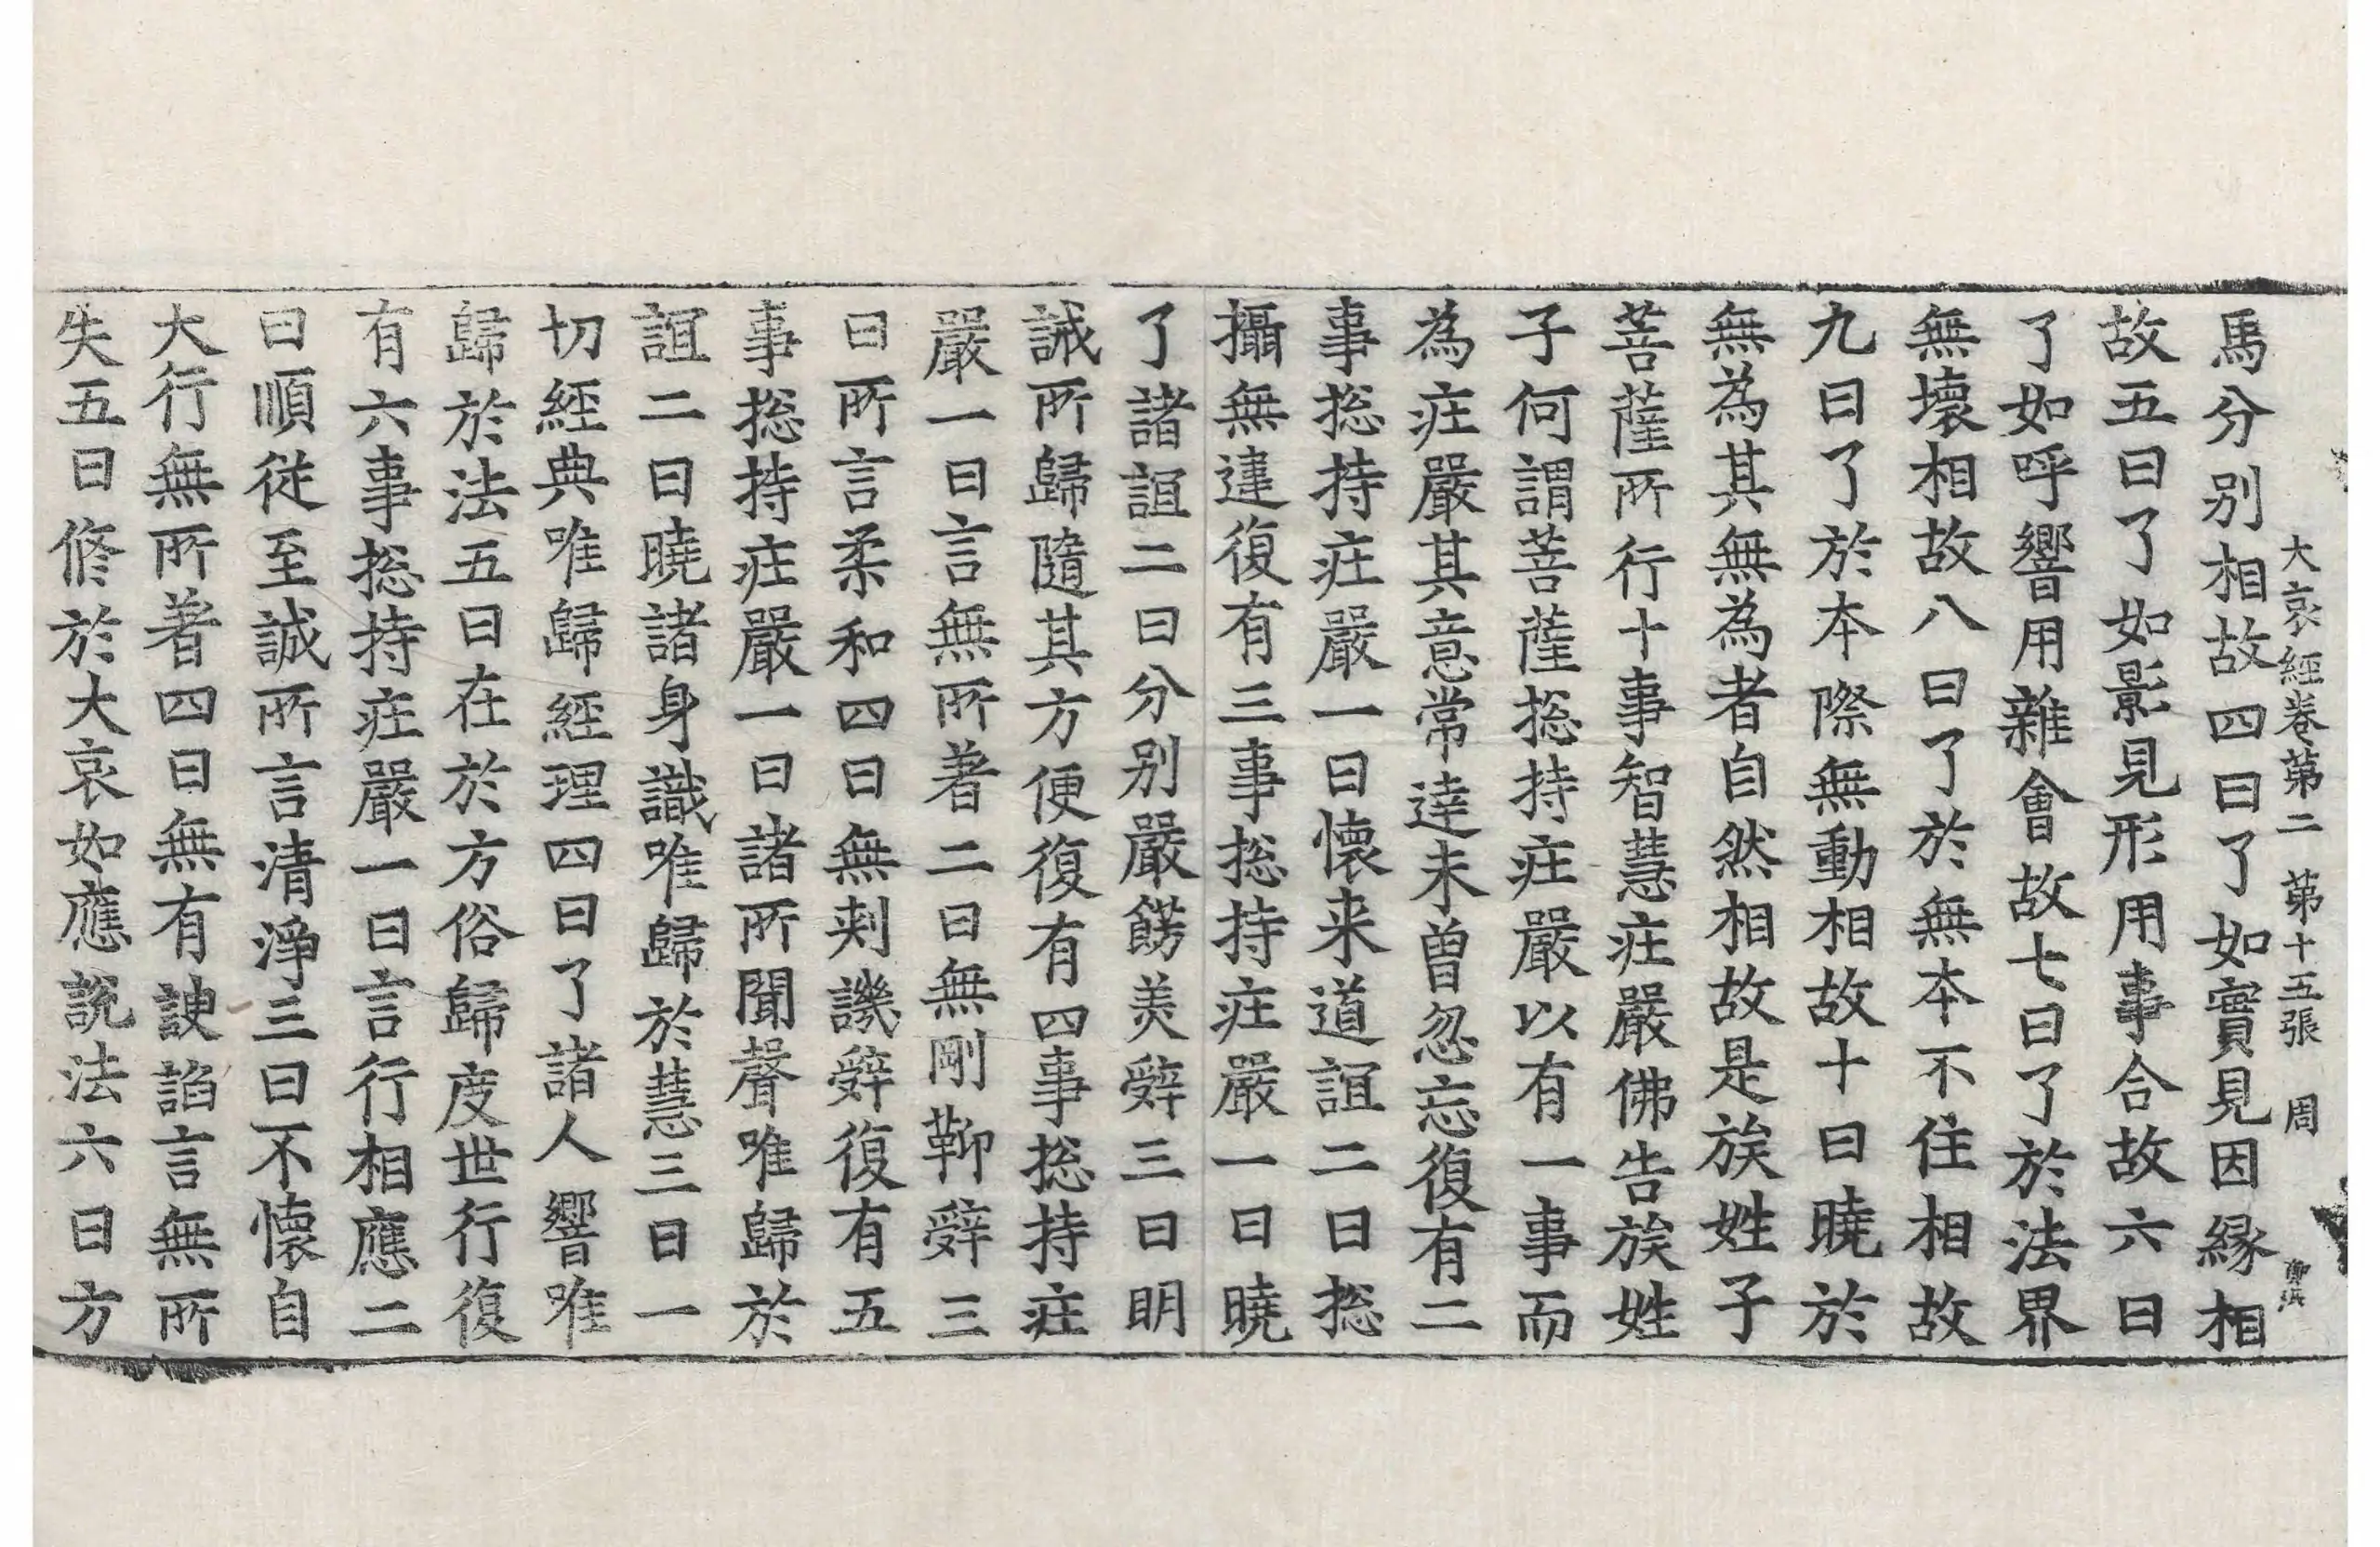 大哀經卷第二 第十五張 周
馬分别相故四曰了如實見因縁相
故五曰了如影見形用事合故六曰
了如呼響用雜會故七曰了於法界
無壞相故八曰了於無本不住相故
九曰了於本際無動相故十曰曉於
無為其無為者自然相故是族姓子
菩薩所行十事智慧疘嚴佛告族姓
子何謂菩薩捴持疘嚴以有一事而
為疘嚴其意常達未曽忽忘復有二
事捴持疘嚴一曰懷来道誼二曰捴
攝無違復有三事捴持疘嚴一曰曉
了諸誼二曰分别嚴餝美辝三曰明
誡所歸隨其方便復有四事捴持疘
嚴一曰言無所著二曰無剛鞕辝三
曰所言柔和四曰無刾譏辝復有五
事捴持疘嚴一曰諸所聞聲唯歸於
誼二曰曉諸身識唯歸於慧三曰一
切經典唯歸經理四曰了諸人響唯
歸於法五曰在於方俗歸度世行復
有六事捴持疘嚴一曰言行相應二
曰順從至誠所言清淨三曰不懷自
大行無所著四曰無有諛諂言無所
失五曰修於大哀如應說法六曰方